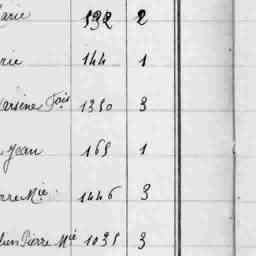 Marie 592 2
rie 144 1
arsène Fois 1350 3
Jean 165 1
rre Mie 1446 3
Pierre Mie 1035 3